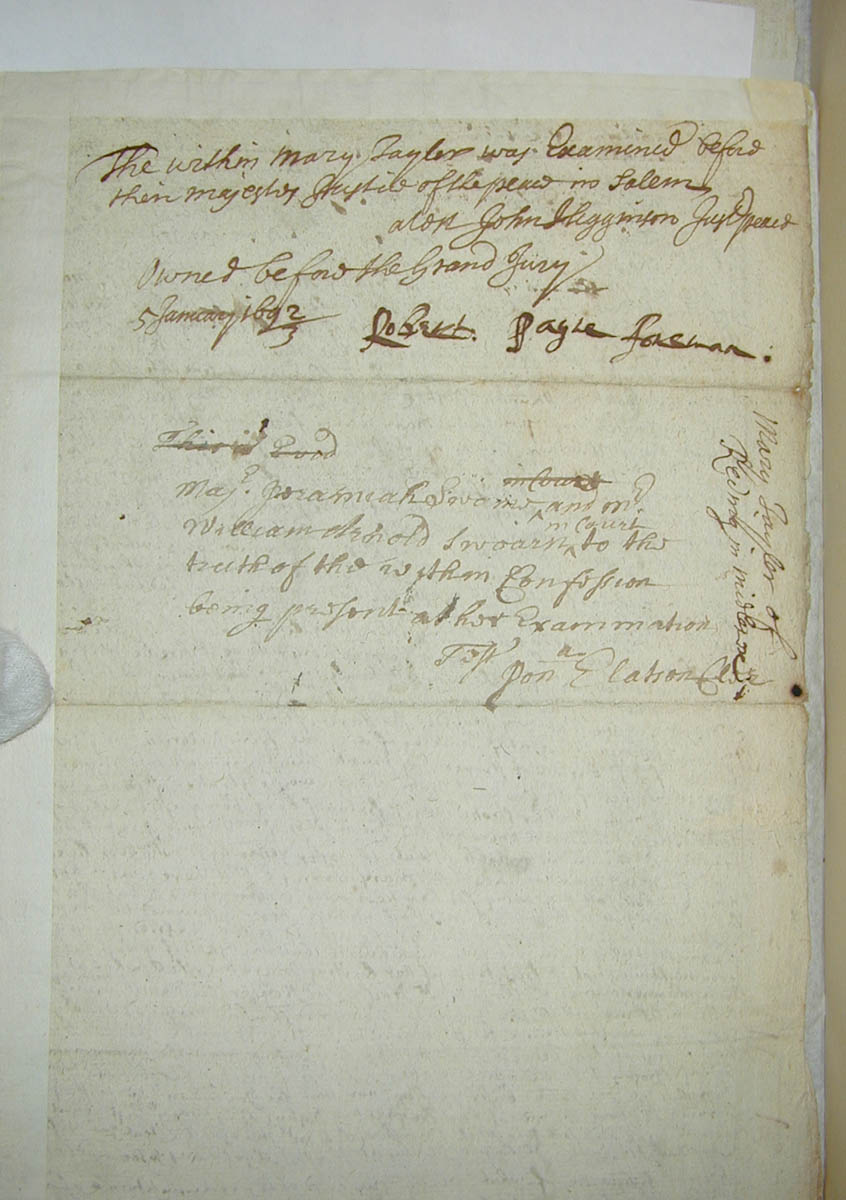 The within Mary Tayler was Examined before
their majesties Justice of the peace in Salem
atest John Higginson Just peace
Owned before the Grand Jury
5 January 1692/3
Robert: Payne foreman.
This is Evid
in Court
Majr. Jeramiah Swaine and mr
in Court
William Arnold Swoarn to the
truth of the within Confession
being present at her Examination
Test Jonn Elatson Cler
Mary Tayler of
Reding in midlesex